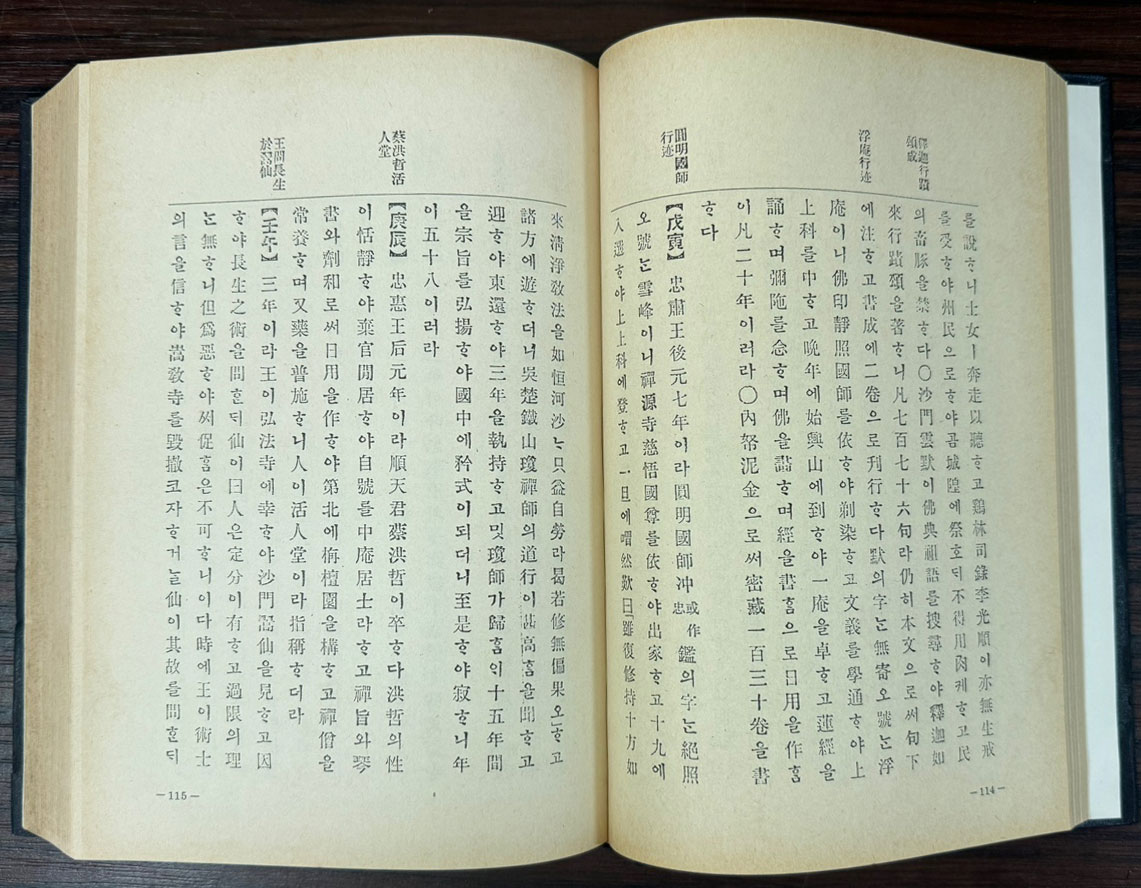 釋迦行蹟
頌成
浮庵行迹
圓明國師
行迹
를說ᄒᆞ니士女ㅣ奔走以聽ᄒᆞ고鷄林司錄李光順이亦無生戒
를受ᄒᆞ야州民으로ᄒᆞ야곰城隍에祭호ᄃᆡ不得用肉케ᄒᆞ고民
의畜豚을禁ᄒᆞ다〇沙門雲默이佛典祖語를搜尋ᄒᆞ야釋迦如
來行蹟頌을著ᄒᆞ니凡七百七十六句라仍히本文으로써句下
에注ᄒᆞ고書成에二卷으로刊行ᄒᆞ다默의字ᄂᆞᆫ無寄오號ᄂᆞᆫ浮
庵이니佛印靜照國師를依ᄒᆞ야剃染ᄒᆞ고文義를學通ᄒᆞ야上
上科를中ᄒᆞ고晩年에始興山에到ᄒᆞ야一庵을卓ᄒᆞ고蓮經을
誦ᄒᆞ며彌陁를念ᄒᆞ며佛을畵ᄒᆞ며經을書홈으로日用을作홈
이凡二十年이러라〇內帑泥金으로써密藏一百三十卷을書
ᄒᆞ다
【戊寅】 忠肅王後元七年이라圓明國師冲或作忠鑑의字ᄂᆞᆫ絕照
오號ᄂᆞᆫ雪峰이니禪源寺慈悟國尊를依ᄒᆞ야出家ᄒᆞ고十九에
入選ᄒᆞ야上上科에登ᄒᆞ고一旦에喟然歎曰「雖復修持十方如
—114—
蔡洪哲活
人堂
王問長生
於翯仙
來淸淨敎法을如恒河沙ᄂᆞᆫ只益自勞라曷若修無偏果오」ᄒᆞ고
諸方에遊ᄒᆞ더니吳楚鐵山瓊禪師의道行이甚高홈을聞ᄒᆞ고
迎ᄒᆞ야東還ᄒᆞ야三年을執持ᄒᆞ고밋瓊師가歸홈ᄋᆡ十五年間
을宗旨를弘揚ᄒᆞ야國中에矜式이되더니至是ᄒᆞ야寂ᄒᆞ니年
이五十八이러라
【庚辰】 忠惠王后元年이라順天君蔡洪哲이卒ᄒᆞ다洪哲의性
이恬靜ᄒᆞ야棄官閒居ᄒᆞ야自號를中庵居士라ᄒᆞ고禪旨와琴
書와劑和로써日用을作ᄒᆞ야第北에栴檀園을構ᄒᆞ고禪僧을
常養ᄒᆞ며又藥을普施ᄒᆞ니人이活人堂이라指稱ᄒᆞ더라
【壬午】 三年이라王이弘法寺에幸ᄒᆞ야沙門翯仙을見ᄒᆞ고因
ᄒᆞ야長生之術을問ᄒᆞᆫᄃᆡ仙이曰人은定分이有ᄒᆞ고過限의理
ᄂᆞᆫ無ᄒᆞ니但爲惡ᄒᆞ야써促홈은不可ᄒᆞ니이다時에王이術士
의言을信ᄒᆞ야嵩敎寺를毁撤코자ᄒᆞ거ᄂᆞᆯ仙이其故를問ᄒᆞᆫᄃᆡ
—115—